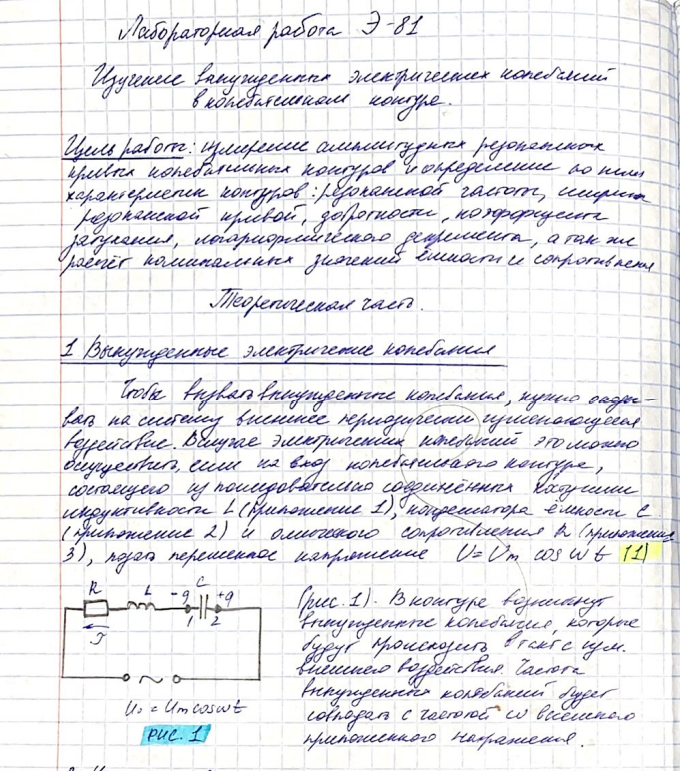 Лабораторная работа Э-81
Изучение вынужденных электрических колебаний
в колебательном контуре.
Цель работы: измерение амплитудных резонансных
кривых колебательных контуров и определение по ним
характеристик контуров: резонансной частоты, ширины
резонансной кривой, добротности, коэффициента
затухания, логарифмического декремента, а так же
расчёт номинальных значений ёмкости и сопротивления
Теоретическая часть.
1 Вынужденные электрические колебания
Чтобы вызвать вынужденные колебания, нужно оказы-
вать на систему внешнее периодически изменяющееся
воздействие. В случае электрических колебаний это можно
осуществить, если на вход колебательного контура,
состоящего из последовательно соединённых катушки
индуктивности L (приложение 1), конденсатора ёмкости C
(приложение 2) и омического сопротивления R (приложение
3), подать переменное напряжение U = Um cos ω t (1)
R L C
-q +q
1 2
J
~
U = Um cos ωt
РИС. 1
(рис. 1). В контуре возникнут
вынужденные колебания, которые
будут происходить в такт с изм.
внешнего воздействия. Частота
вынужденных колебаний будет
совпадать с частотой ω внешнего
приложенного напряжения.